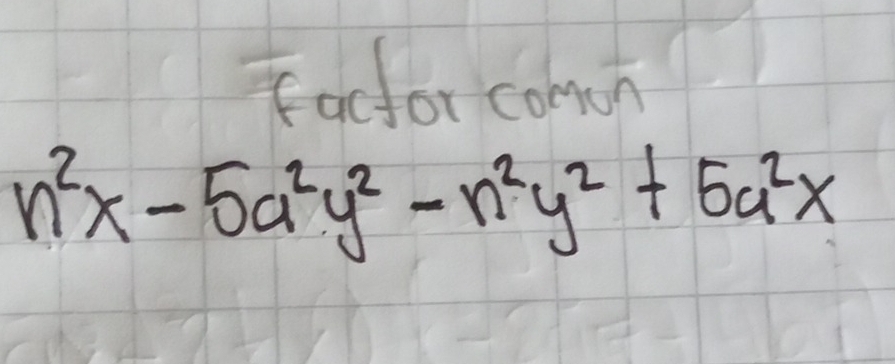 Factor comun
n²x - 5a²y² - n²y² + 5a²x